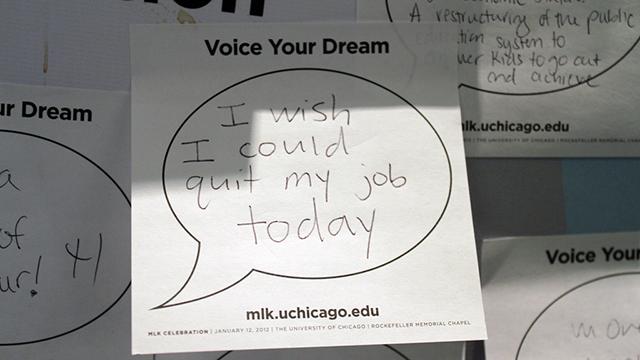 Voice Your Dream
I wish
I could
quit my job
today
mlk.uchicago.edu
MLK CELEBRATION | JANUARY 12, 2012 | THE UNIVERSITY OF CHICAGO | ROCKEFELLER MEMORIAL CHAPEL
ur Dream
a
of
ur!
A restructuring of the public
system to
kids to go out
and achieve
mlk.uchicago.edu
THE UNIVERSITY OF CHICAGO | ROCKEFELLER MEMORIAL CHAPEL
Voice Your